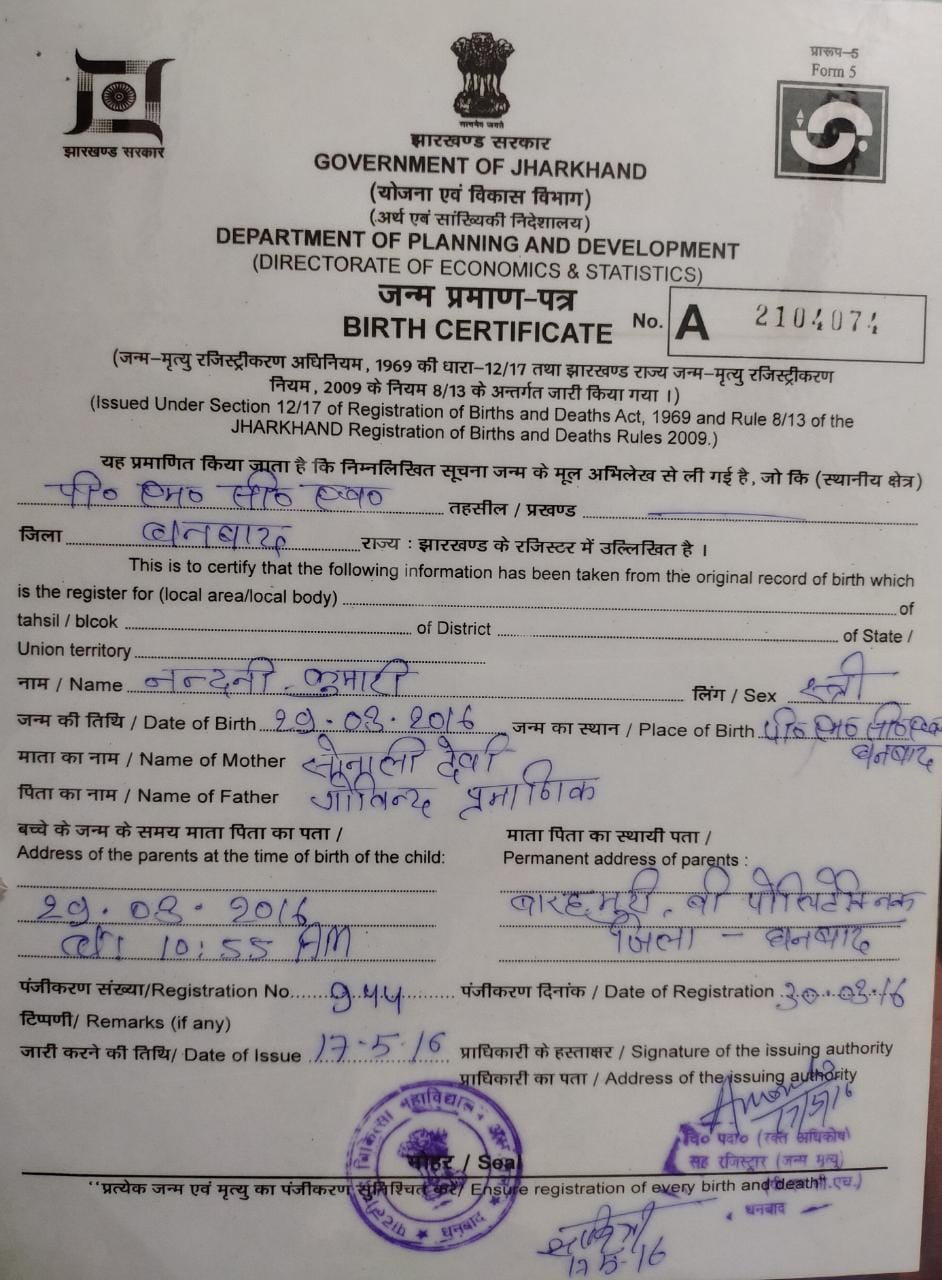 प्रारूप-5
Form 5
झारखण्ड सरकार
सत्यमेव जयते
झारखण्ड सरकार
GOVERNMENT OF JHARKHAND
(योजना एवं विकास विभाग)
(अर्थ एवं सांख्यिकी निदेशालय)
DEPARTMENT OF PLANNING AND DEVELOPMENT
(DIRECTORATE OF ECONOMICS & STATISTICS)
जन्म प्रमाण-पत्र
BIRTH CERTIFICATE No. A 2104074
(जन्म-मृत्यु रजिस्ट्रीकरण अधिनियम, 1969 की धारा-12/17 तथा झारखण्ड राज्य जन्म-मृत्यु रजिस्ट्रीकरण
नियम, 2009 के नियम 8/13 के अन्तर्गत जारी किया गया ।)
(Issued Under Section 12/17 of Registration of Births and Deaths Act, 1969 and Rule 8/13 of the
JHARKHAND Registration of Births and Deaths Rules 2009.)
यह प्रमाणित किया जाता है कि निम्नलिखित सूचना जन्म के मूल अभिलेख से ली गई है, जो कि (स्थानीय क्षेत्र)
पी० एम० सी० एच० तहसील / प्रखण्ड
जिला धनबाद राज्य : झारखण्ड के रजिस्टर में उल्लिखित है ।
This is to certify that the following information has been taken from the original record of birth which
is the register for (local area/local body) of
tahsil / blcok of District of State /
Union territory
नाम / Name नन्दनी कुमारी लिंग / Sex स्त्री
जन्म की तिथि / Date of Birth 29.03.2016 जन्म का स्थान / Place of Birth पी० एम० सी० एच०
धनबाद
माता का नाम / Name of Mother सोनाली देवी
पिता का नाम / Name of Father गोविन्द प्रमाणिक
बच्चे के जन्म के समय माता पिता का पता / माता पिता का स्थायी पता /
Address of the parents at the time of birth of the child: Permanent address of parents :
29.03.2016 बारहमुरी, बी पोलिटेकनिक
10:55 AM जिला - धनबाद
पंजीकरण संख्या/Registration No. 944 पंजीकरण दिनांक / Date of Registration 30.03.16
टिप्पणी/ Remarks (if any)
जारी करने की तिथि/ Date of Issue 17-5-16 प्राधिकारी के हस्ताक्षर / Signature of the issuing authority
प्राधिकारी का पता / Address of the issuing authority
17/5/16
चिकित्सा महाविद्यालय
धनबाद
वि० पदा० (रक्त अधिकोष)
सह रजिस्ट्रार (जन्म मृत्यु)
धनबाद
मोहर / Seal
"प्रत्येक जन्म एवं मृत्यु का पंजीकरण सुनिश्चित करें/ Ensure registration of every birth and death"
17-5-16